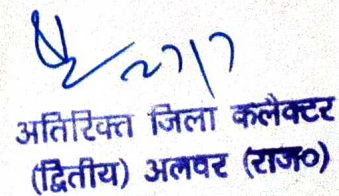 27/7
अतिरिक्त जिला कलैक्टर
(द्वितीय) अलवर (राज०)